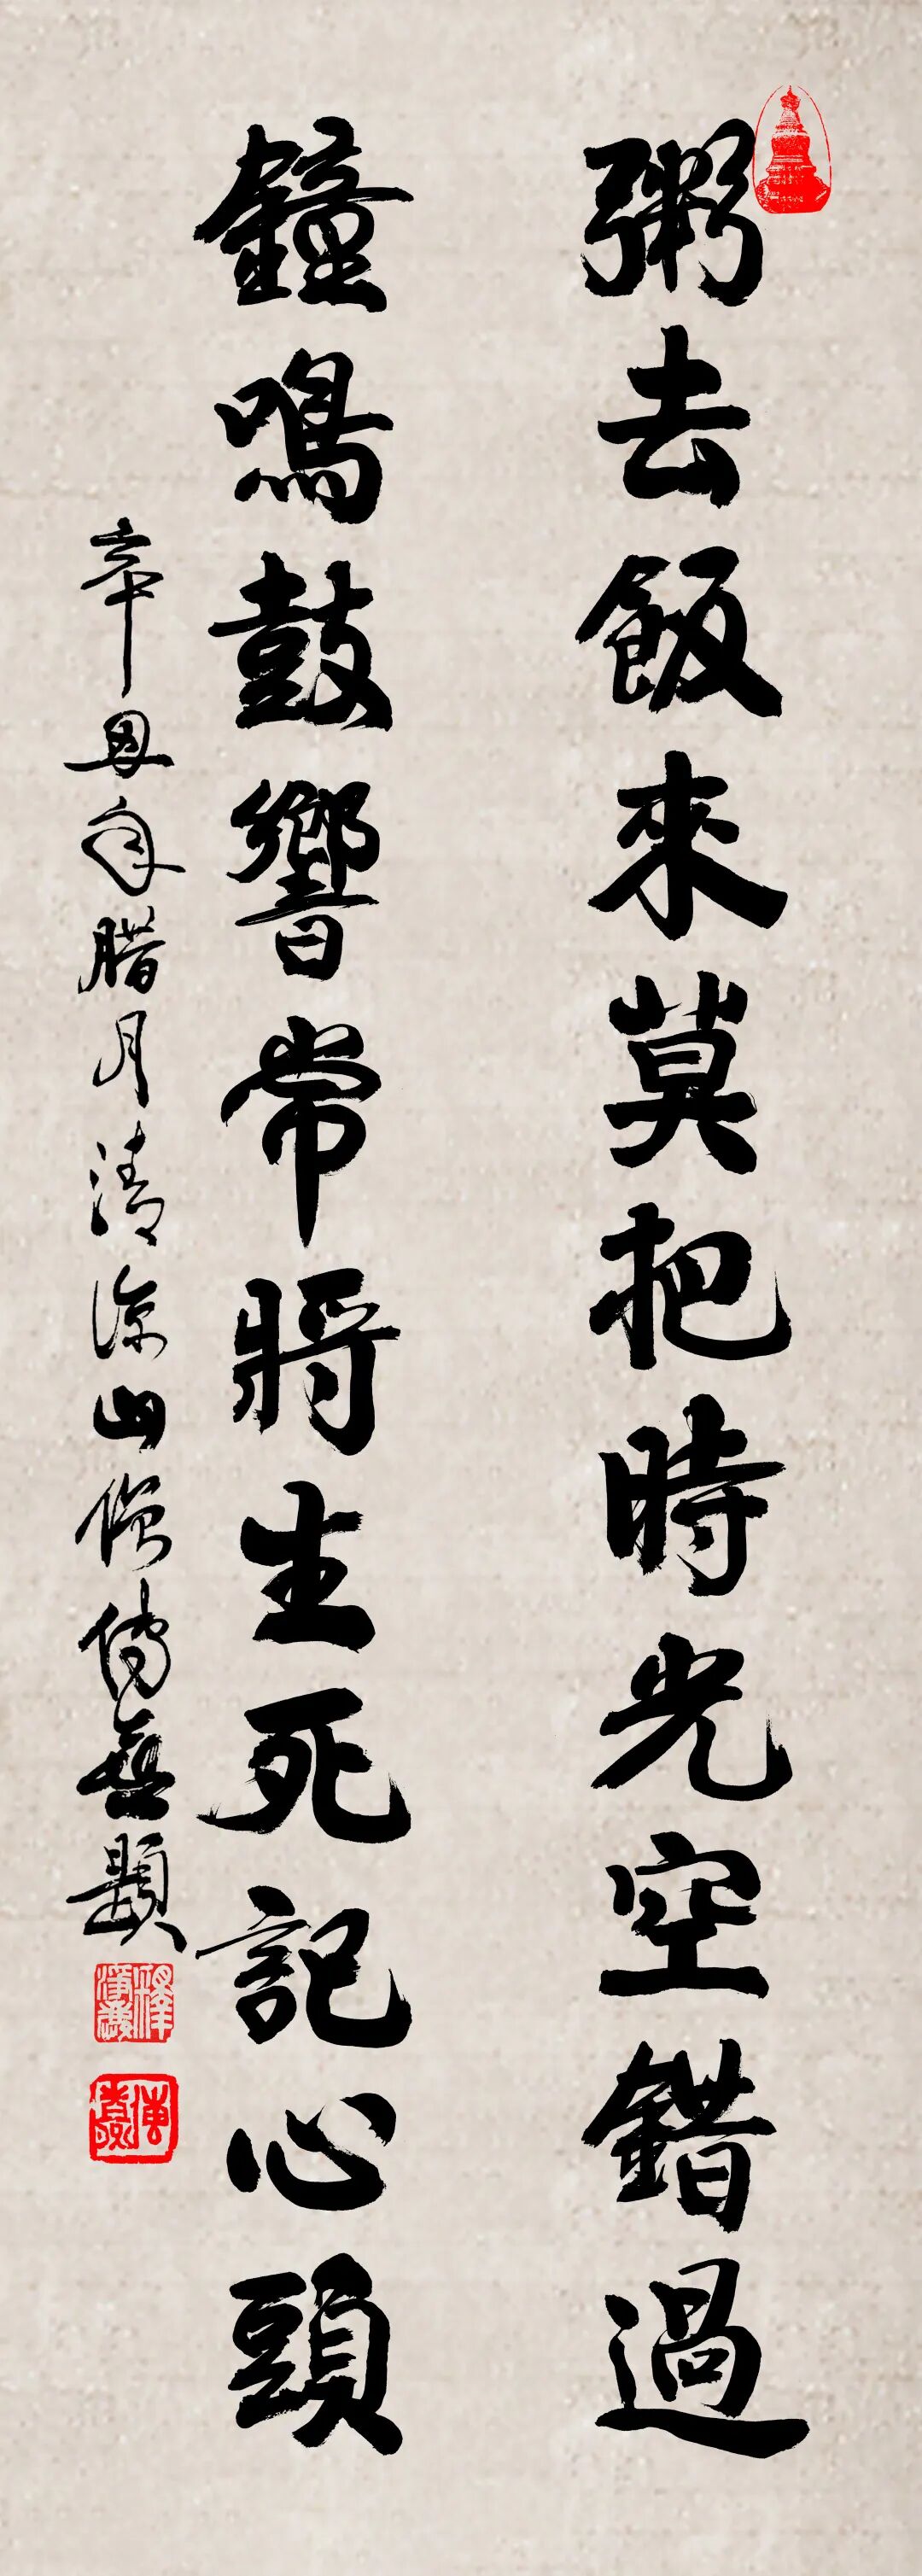 粥去飯來莫把時光空錯過
鐘鳴鼓響常將生死記心頭
辛丑年腊月清涼山僧傳無題